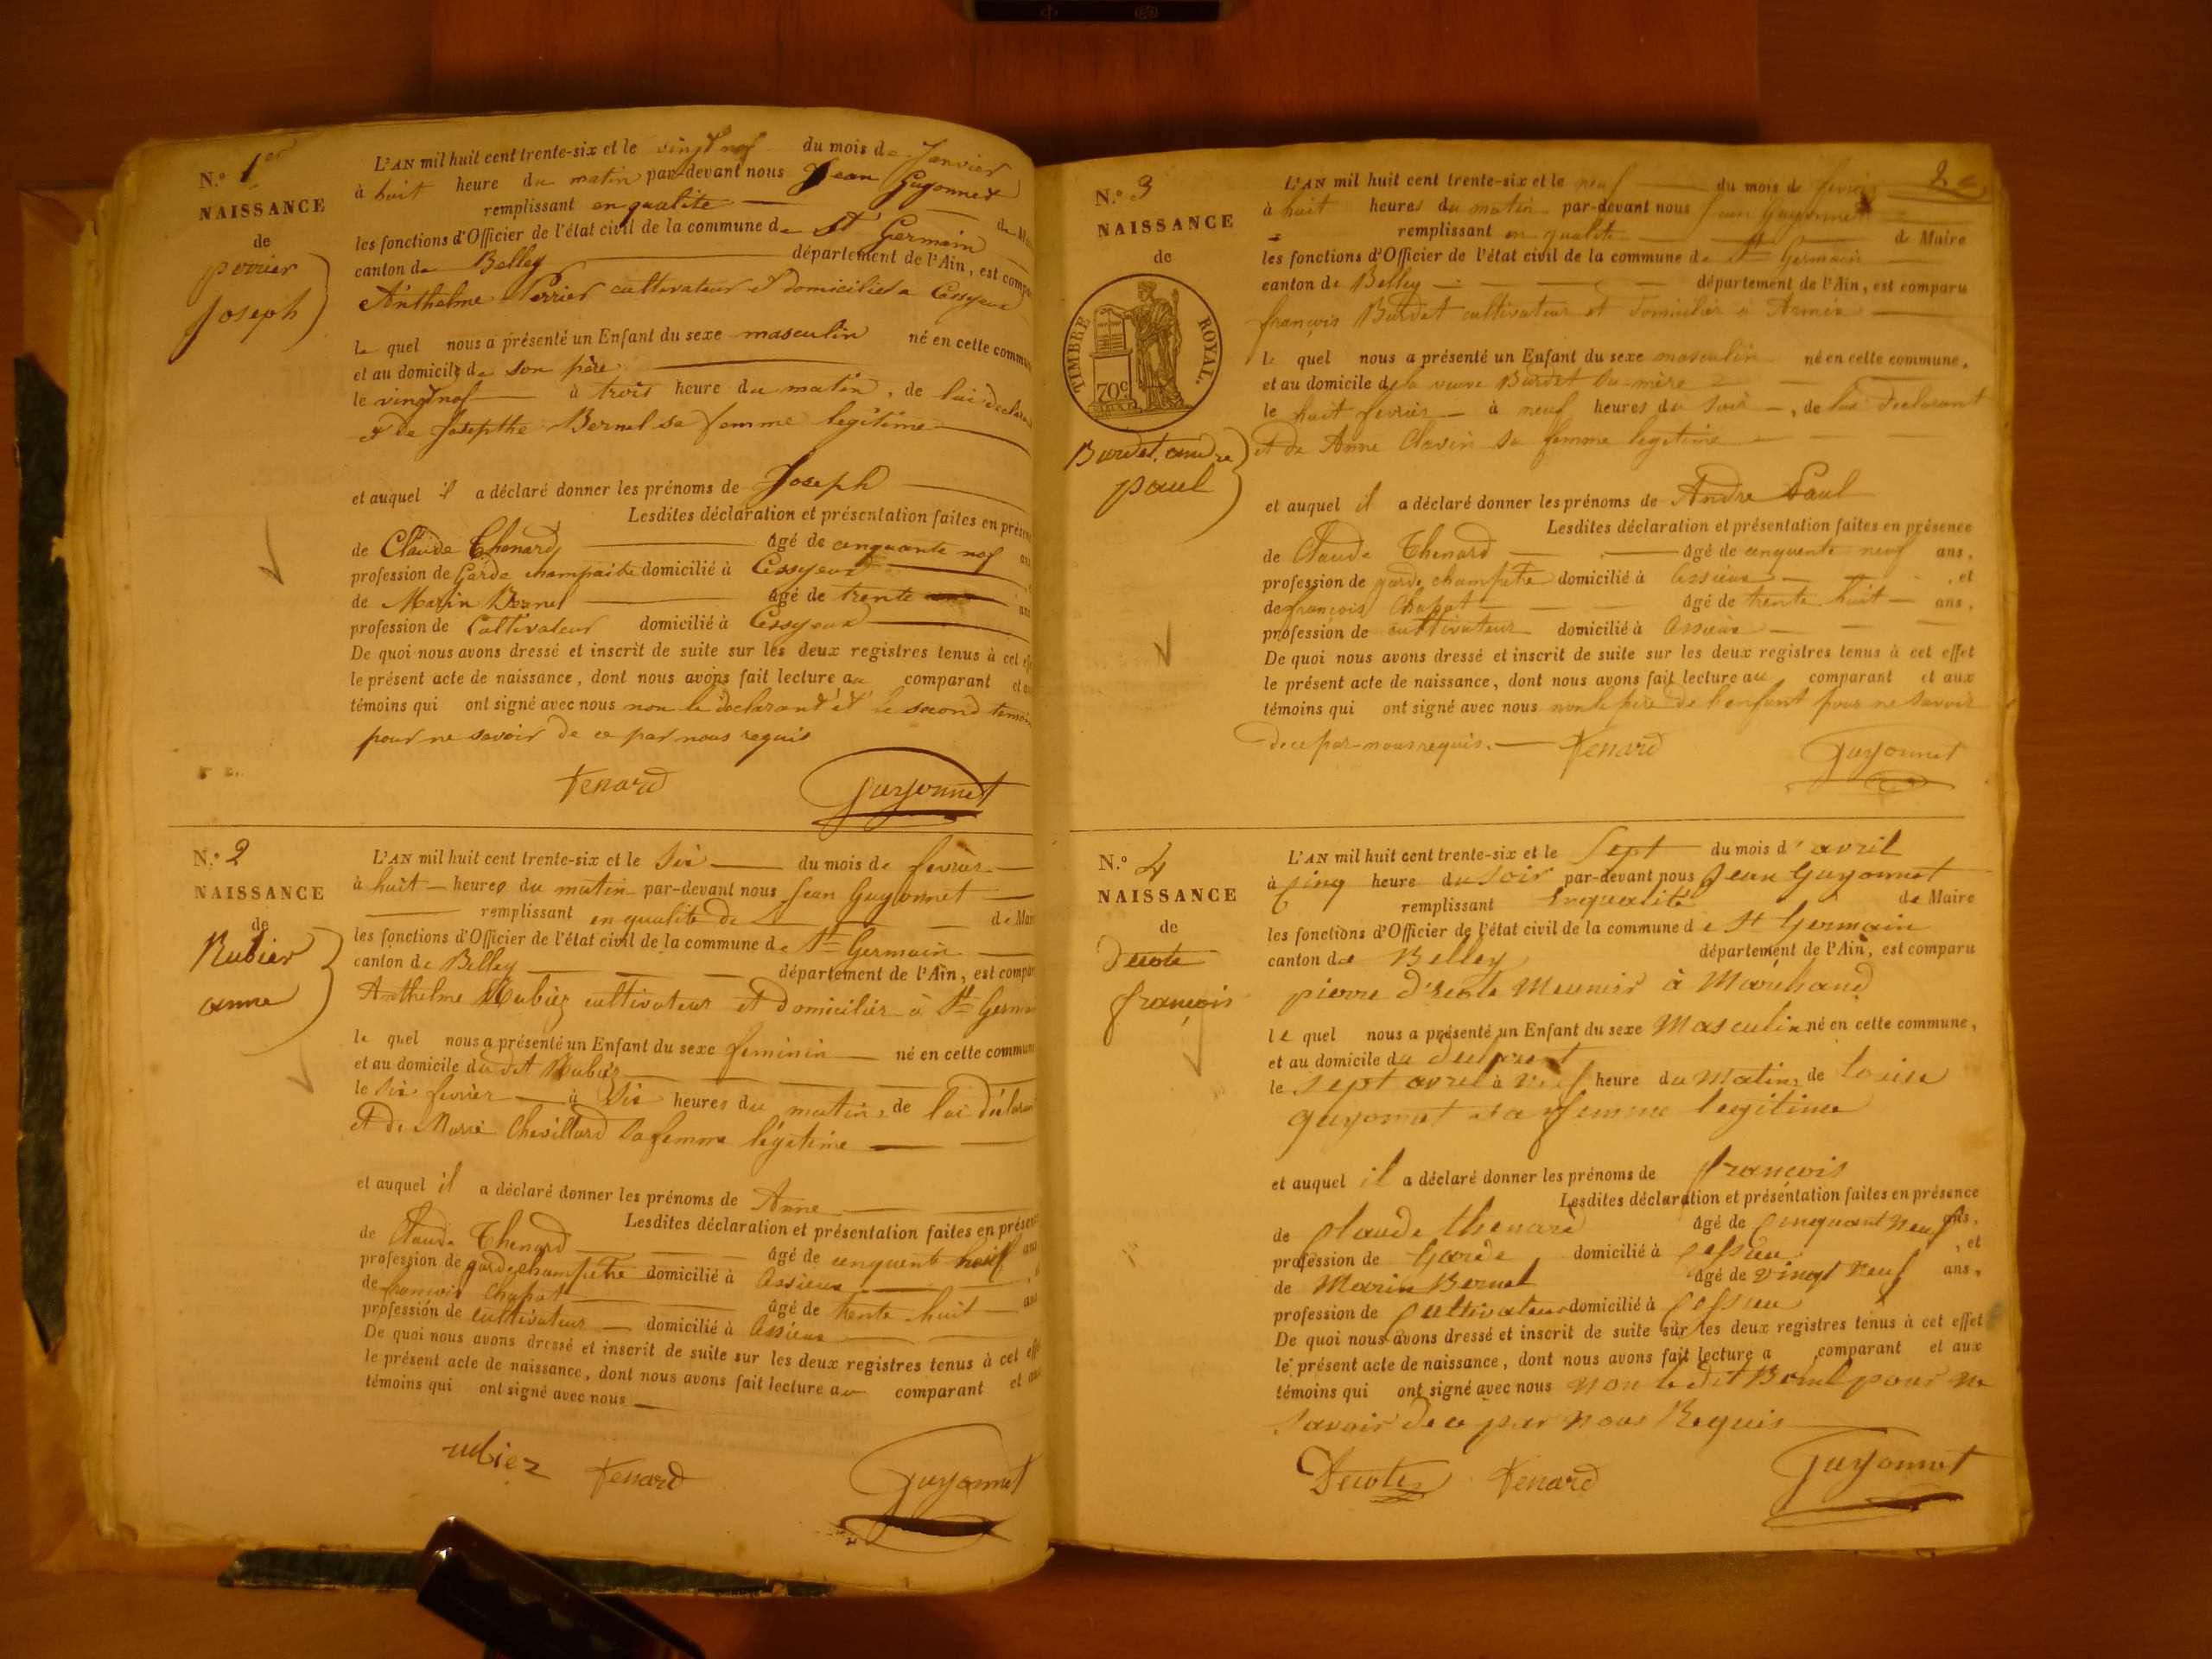 N.º 1er
NAISSANCE
de
perrier
joseph
L'AN mil huit cent trente-six et le vingt nof du mois de Janvier
à huit heure du matin par-devant nous Jean Guyonnet
remplissant en qualite de
les fonctions d'Officier de l'état civil de la commune de St Germain
canton de Belley département de l'Ain, est
Anthelme Perrier cultivateur et domicilié a Cessyeux
le quel nous a présenté un Enfant du sexe masculin né en cette
et au domicile de son père
le vingt nof à trois heure du matin, de lui
et de Josepthe Bernel sa femme legitime
et auquel il a déclaré donner les prénoms de Joseph
Lesdites déclaration et présentation faites en
de Claude Thenard âgé de cinquante nof
profession de Garde champaitre domicilié à Cessyeux
de Marin Bernel âgé de trente
profession de Cultivateur domicilié à Cessyeux
De quoi nous avons dressé et inscrit de suite sur les deux registres tenus à cet
le présent acte de naissance, dont nous avons fait lecture au comparant
témoins qui ont signé avec nous non le declarant et le second
pour ne savoir de ce par nous requis
Tenard Guyonnet
N.º 2
NAISSANCE
de
Rubier
anne
L'AN mil huit cent trente-six et le Six du mois de fevrier
à huit heures du matin par-devant nous Jean Guyonnet
remplissant en qualité de
les fonctions d'Officier de l'état civil de la commune de St Germain
canton de Belley département de l'Ain, est
Anthelme Rubiez cultivateur et domicilier à St
le quel nous a présenté un Enfant du sexe feminin né en cette
et au domicile du dit Rubiez
le Six fevrier à Six heures du matin, de lui
et de Marie Chevillard Sa femme légitime
et auquel il a déclaré donner les prénoms de Anne
Lesdites déclaration et présentation faites en
de Claude Thenard âgé de cinquente
profession de garde champêtre domicilié à Cessieux
de françois Chapot âgé de trente huit
profession de cultivateur domicilié à Cessieux
De quoi nous avons dressé et inscrit de suite sur les deux registres tenus à cet
le présent acte de naissance, dont nous avons fait lecture au comparant
témoins qui ont signé avec nous
rubiez Tenard Guyonnet
2
N.º 3
NAISSANCE
de
TIMBRE ROYAL.
70c
Burdet andre
paul
L'AN mil huit cent trente-six et le neuf du mois de fevrier
à huit heures du matin par-devant nous Jean Guyonnet
remplissant en qualité de Maire
les fonctions d'Officier de l'état civil de la commune de St Germain
canton de Belley département de l'Ain, est comparu
françois Burdet cultivateur et domicilier à Armix
le quel nous a présenté un Enfant du sexe masculin né en cette commune,
et au domicile de la veuve Burdet Sa mère
le huit fevrier à neuf heures du Soir, de lui declarant
et de Anne Clavin Sa femme legitime
et auquel il a déclaré donner les prénoms de Andre Paul
Lesdites déclaration et présentation faites en présence
de Claude Thenard âgé de cinquente neuf ans,
profession de garde champetre domicilié à Cessieux, et
de françois Chapot âgé de trente huit ans,
profession de cultivateur domicilié à Cessieux
De quoi nous avons dressé et inscrit de suite sur les deux registres tenus à cet effet
le présent acte de naissance, dont nous avons fait lecture au comparant et aux
témoins qui ont signé avec nous non le père de l'enfant pour ne savoir
de ce par nous requis. Tenard Guyonnet
N.º 4
NAISSANCE
de
Decote
françois
L'AN mil huit cent trente-six et le Sept du mois d'avril
à Cinq heure du Soir par-devant nous Jean Guyonnet
remplissant Enqualité de Maire
les fonctions d'Officier de l'état civil de la commune de St Germain
canton de Belley département de l'Ain, est comparu
pierre Meunier à Marchand
le quel nous a présenté un Enfant du sexe Masculin né en cette commune,
et au domicile du
le Sept avril à neuf heure du Matin, de Louise
guyonnet sa femme legitime
et auquel il a déclaré donner les prénoms de françois
Lesdites déclaration et présentation faites en présence
de Claude thenard âgé de Cinquant neuf ans,
profession de Garde domicilié à Cessieu, et
de Marin Bernel âgé de vingt neuf ans,
profession de Cultivateur domicilié à Cessieu
De quoi nous avons dressé et inscrit de suite sur les deux registres tenus à cet effet
le présent acte de naissance, dont nous avons fait lecture a comparant et aux
témoins qui ont signé avec nous Non le dit Bernel pour ne
Savoir de ce par Nous Requis
Decote Tenard Guyonnet